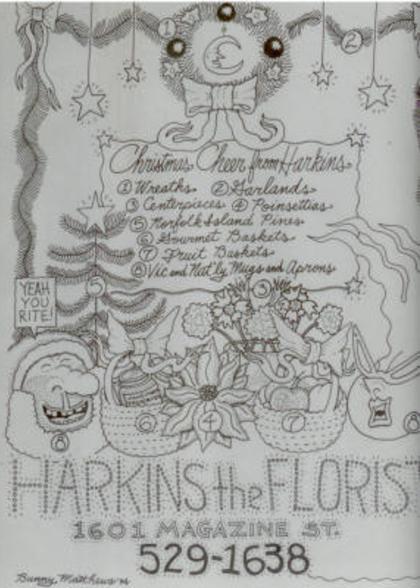 ① ②
Christmas Cheer from Harkins
① Wreaths ② Garlands
③ Centerpieces ④ Poinsettias
⑤ Norfolk Island Pines
⑥ Gourmet Baskets
⑦ Fruit Baskets
⑧ Vic and Nat'ly Mugs and Aprons
YEAH
YOU
RITE!
⑤ ③
⑥ ④ ⑦
⑧ ⑧
HARKINS the FLORIS
1601 MAGAZINE ST.
529-1638
Bunny Matthews